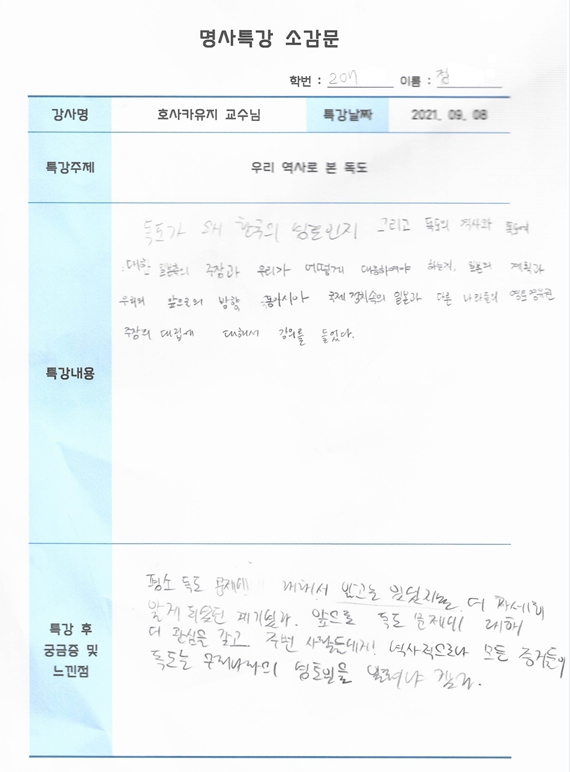 명사특강 소감문
학번 : 207 이름 : 정
강사명 호사카유지 교수님 특강날짜 2021. 09. 08
특강주제 우리 역사로 본 독도
특강내용
독도가 왜 한국의 영토인지 그리고 독도의 역사와 독도에
대한 일본의 주장과 우리가 어떻게 대응하여야 하는지, 일본의 계획과
우리의 앞으로의 방향 동아시아 국제정치속의 일본과 다른 나라들의 영토영유권
주장의 대립에 대해서 강의를 들었다.
특강 후
궁금증 및
느낀점
평소 독도 문제에 대해서 알고는 있었지만 더 자세히
알게 되었던 계기였다. 앞으로 독도 문제에 대해
더 관심을 갖고 주변 사람들에게! 역사적으로나 모든 증거들이
독도는 우리나라의 영토임을 알려야 겠다.